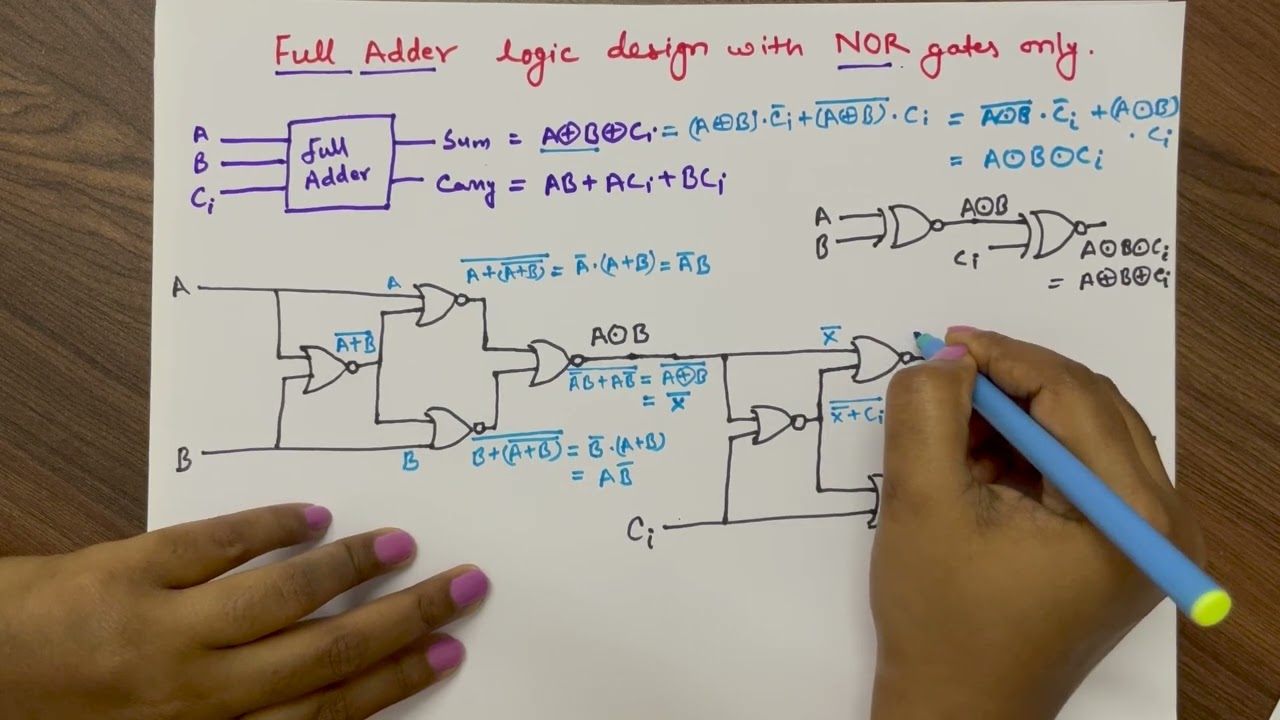 Full Adder logic design with NOR gates only.
A
B
Ci
Full
Adder
Sum = A⊕B⊕Ci = (A⊕B)·C̅i + (A̅⊕̅B̅)·Ci = A̅⊙̅B̅·C̅i + (A⊙B)
·Ci
= A⊙B⊙Ci
Carry = AB + ACi + BCi
A
B
A⊙B
Ci
A⊙B⊙Ci
= A⊕B⊕Ci
A
A
A̅+̅(̅A̅+̅B̅)̅ = A̅·(A+B) = A̅B
A̅+̅B̅
A⊙B
A̅B + AB̅ = A̅⊕̅B̅
= X̅
X̅
X̅+Ci
B
B
B̅+̅(̅A̅+̅B̅)̅ = B̅·(A+B)
= AB̅
Ci